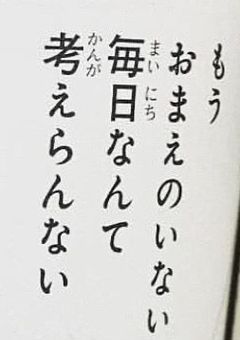 もう
おまえのいない
毎日なんて
考えらんない